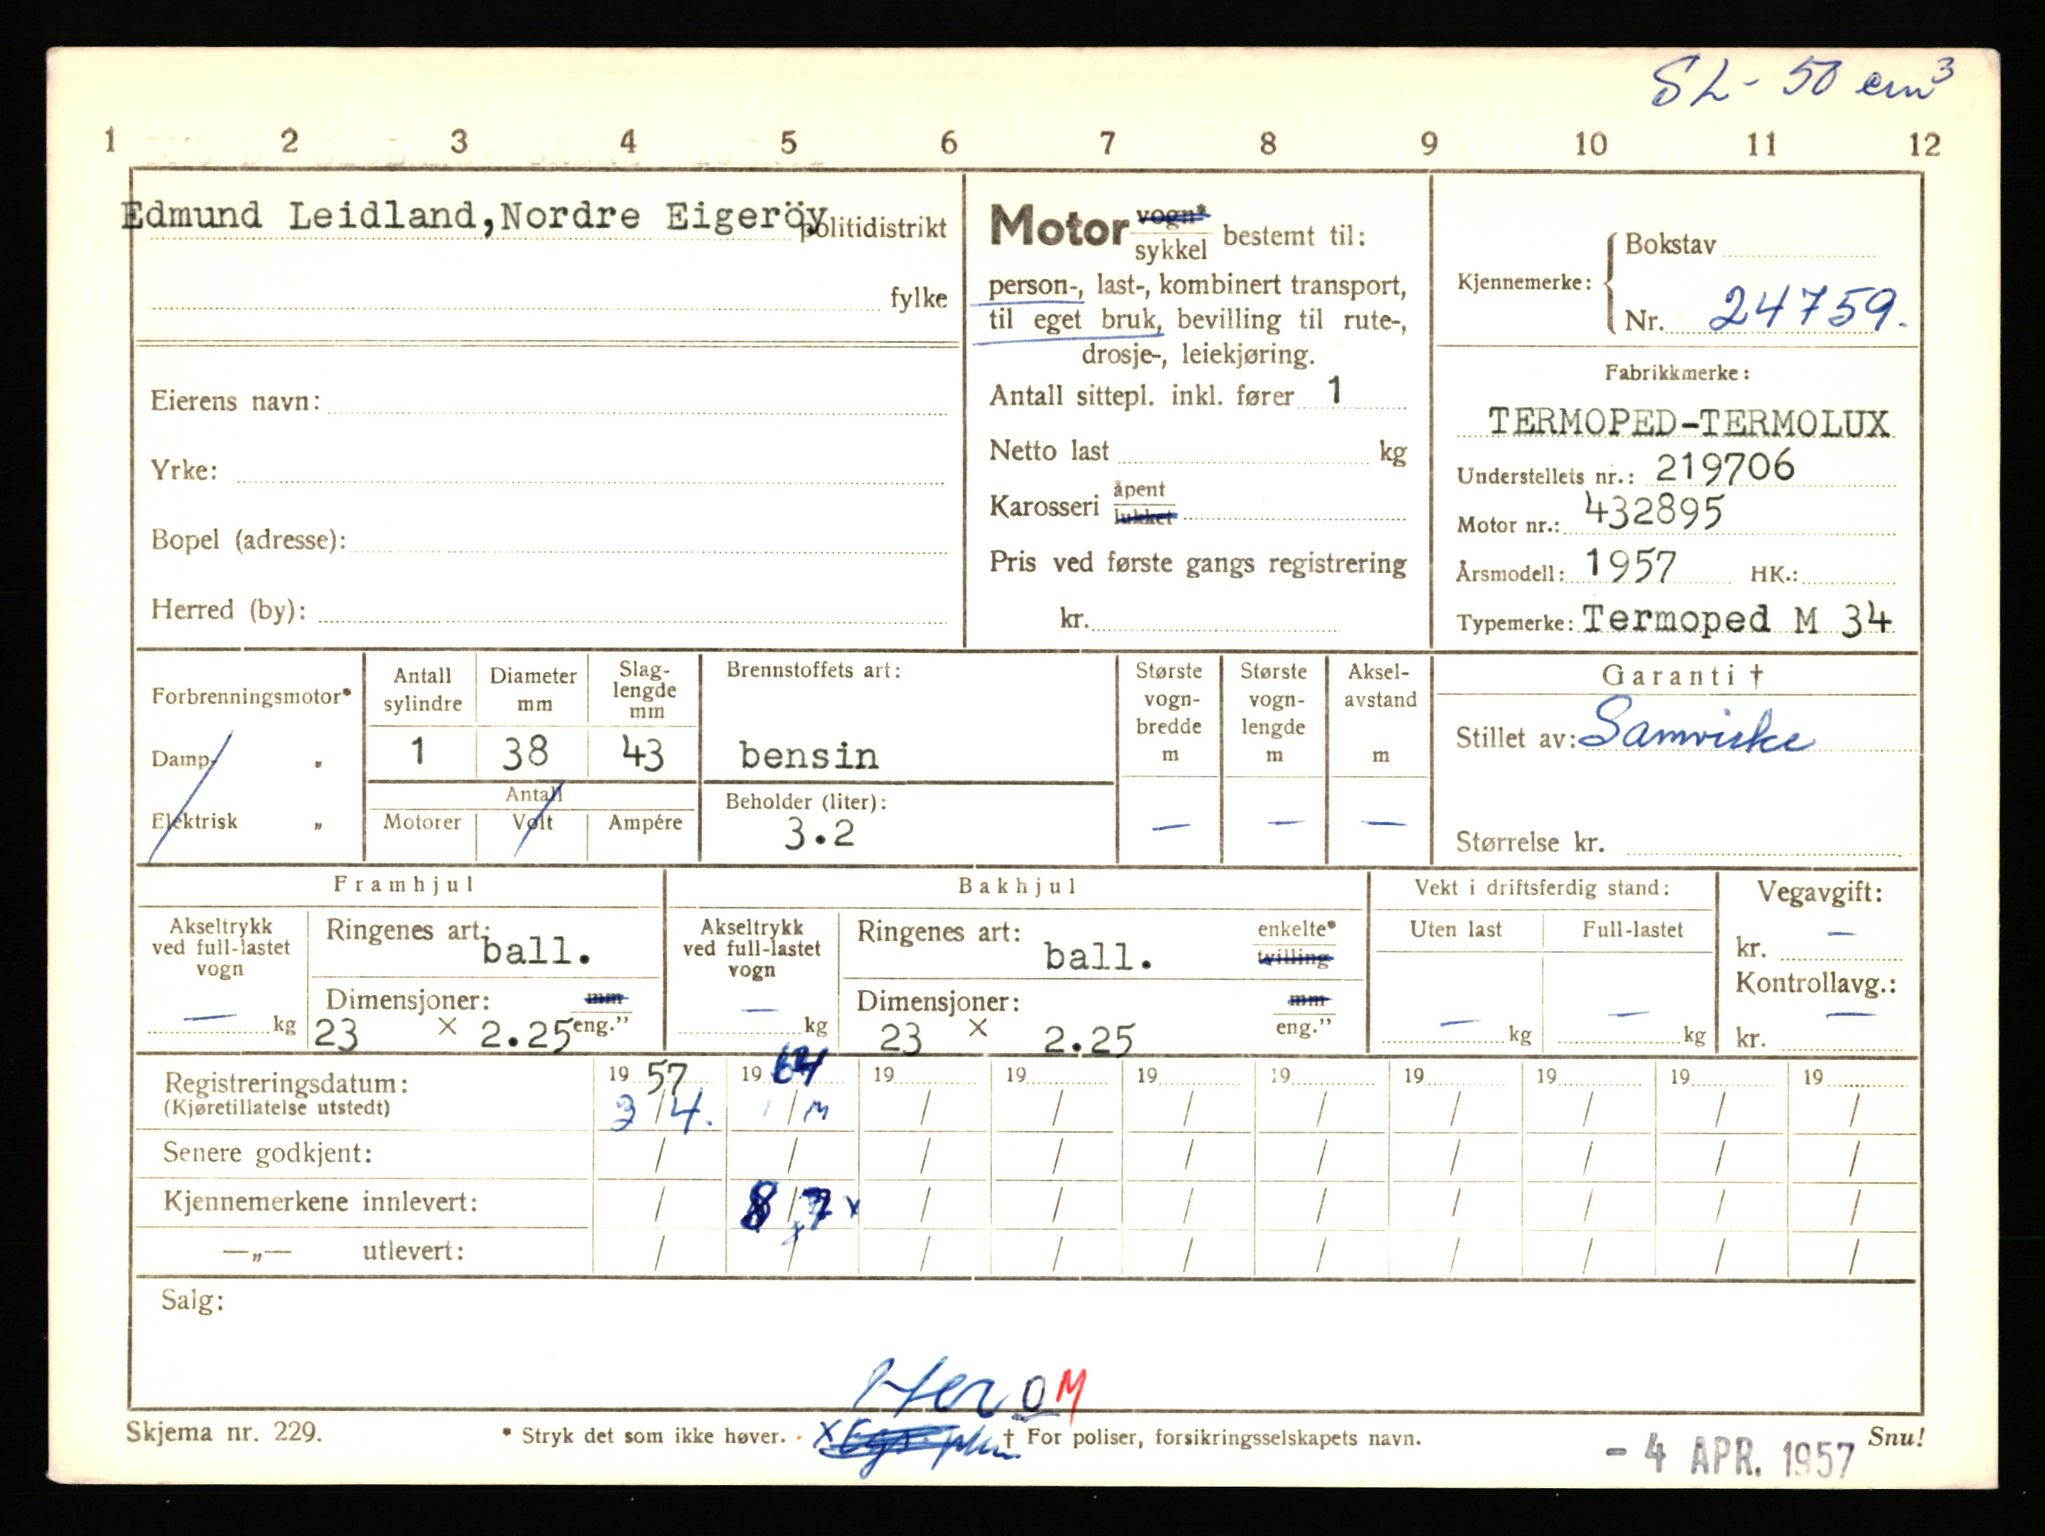 SL - 50 cm³
1 2 3 4 5 6 7 8 9 10 11 12
Edmund Leidland, Nordre Eigeröy politidistrikt
fylke
Eierens navn:
Yrke:
Bopel (adresse):
Herred (by):
Motor vogn* sykkel bestemt til:
person-, last-, kombinert transport,
til eget bruk, bevilling til rute-,
drosje-, leiekjøring.
Antall sittepl. inkl. fører 1
Netto last kg
Karosseri åpent lukket
Pris ved første gangs registrering
kr.
Kjennemerke: Bokstav
Nr. 24759.
Fabrikkmerke:
TERMOPED-TERMOLUX
Understellets nr.: 219706
Motor nr.: 432895
Årsmodell: 1957 HK.:
Typemerke: Termoped M 34
Forbrenningsmotor*
Damp- „
Elektrisk „
Antall sylindre
1
Diameter mm
38
Slag-lengde mm
43
Antall
Motorer Volt Ampére
Brennstoffets art:
bensin
Beholder (liter):
3.2
Største vogn-bredde m
—
Største vogn-lengde m
—
Aksel-avstand m
—
Garanti †
Stillet av: Samviske
Størrelse kr.
Framhjul
Akseltrykk ved full-lastet vogn
— kg
Ringenes art: ball.
Dimensjoner: mm
23 × 2.25 eng.”
Bakhjul
Akseltrykk ved full-lastet vogn
— kg
Ringenes art: ball. enkelte* tvilling
Dimensjoner: mm
23 × 2.25 eng.”
Vekt i driftsferdig stand:
Uten last Full-lastet
— kg — kg
Vegavgift:
kr. —
Kontrollavg.:
kr. —
Registreringsdatum: 19 57 19 64 19 19 19 19 19 19 19 19
(Kjøretillatelse utstedt) 3/4. / M / / / / / / / /
Senere godkjent: / / / / / / / / / /
Kjennemerkene innlevert: / 8/7 x / / / / / / / /
—„— utlevert: / / / / / / / / / /
Salg:
Her O M
Skjema nr. 229.
* Stryk det som ikke høver.
† For poliser, forsikringsselskapets navn.
- 4 APR. 1957
Snu!